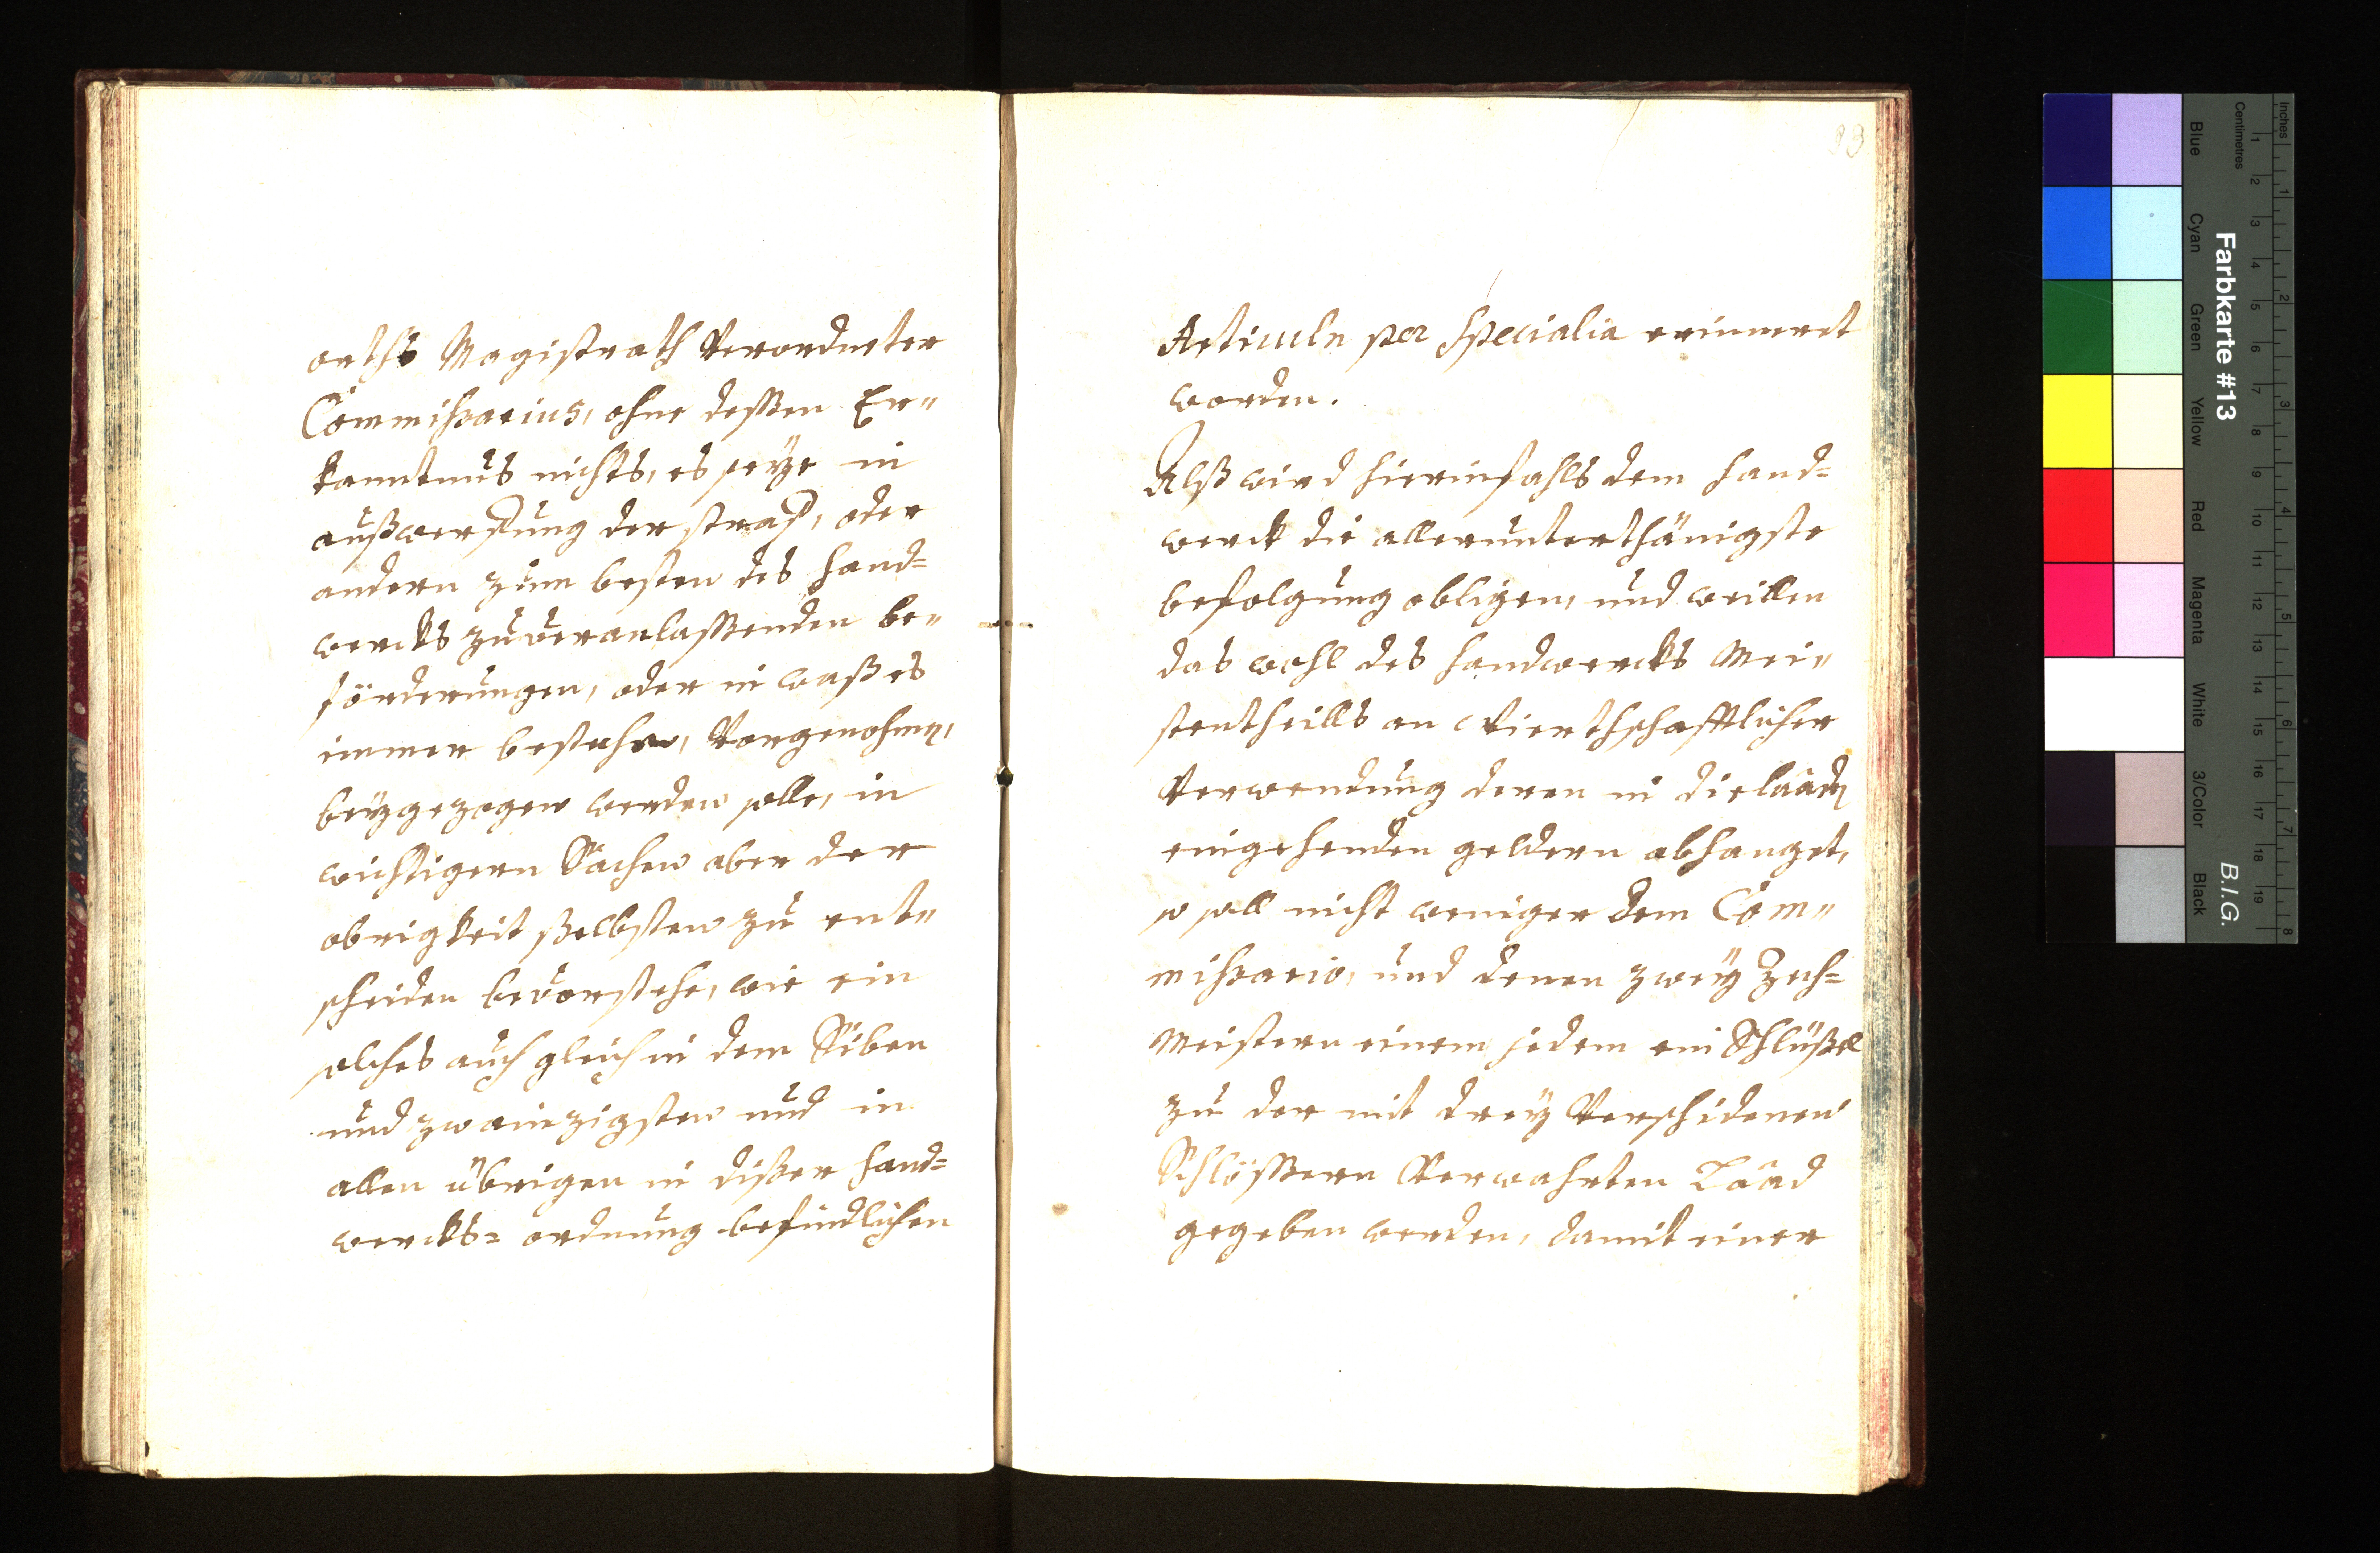 orths Magistrath Verordneter
Commissarius, ohne dessen Er„
kanntnus nichts, es seÿe in
außwerffung der straff, oder
andern zum besten des hand=
wercks zuveranlassenden be„
förderungen, oder in waß es
immer bestehe, Vorgenohmen,
beÿgezogen werden solle, in
wichtigern Sachen aber der
obrigkeit sselbsten zu ent„
scheiden bevorstehe, wie ein
solches auch gleich in dem Siben
und zwainzigsten und in
allen übrigen in disser hand=
wercks= ordnung befindlichen
93
Articuln per specialia erinneret
worden.
Alß wird hierinfahls dem hand=
werck die allerunterthänigste
befolgung obligen, und weillen
das wohl des handwercks Mei„
stentheills an Wierthschafftlicher
Verwendung deren in die laad
eingehenden geldern abhanget,
so soll nicht weniger dem Com„
missario, und denen zweÿ Zech=
Meistern einem jedem ein Schlüssel
zu der mit dreÿ Verschidenen
Schlössern Verwahrten Laad
gegeben werden, damit einer
Farbkarte #13
B.I.G.
Inches
Centimetres
Blue
Cyan
Green
Yellow
Red
Magenta
White
3/Color
Black
1 2 3 4 5 6 7 8 9 10 11 12 13 14 15 16 17 18 19
1 2 3 4 5 6 7 8